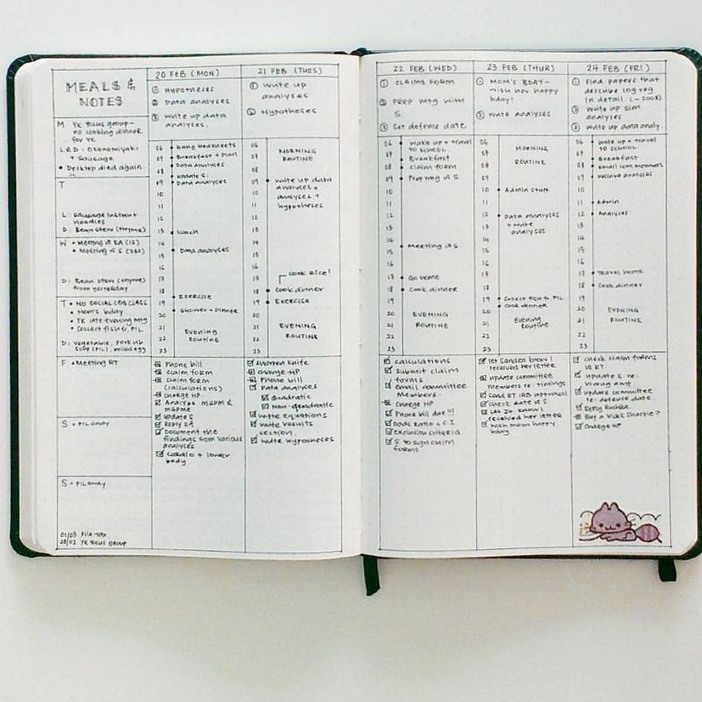 MEALS &
NOTES
M YK focus group -
no cooking dinner
for YK
L & D: Okonomiyaki
+ Sausage
• Desktop died again
T
L: Sausage instant
noodles
D: Bean stew (thyme)
W • Meeting w RA (12)
• Meeting w S
D: Bean stew (thyme)
from yesterday
T • NO SOCIAL LEG CLASS
• Mom's bday
• YK late evening mtg
• Collect fish f/s, PIL
D: Vegetable, pork rib
soup (PIL), boiled egg
F • Meeting RT
S • PIL away
S • PIL away
28/02 YK focus group
20 FEB (MON)
① Hypotheses
② Data analyses
③ Write up data
analyses.
06 Hang bedsheets
07 Breakfast + plan
08 Data analyses
09 Update S.
Data analyses
10
11
12
13 Lunch
14
15 Data analyses
16
17
18
19 Exercise
20 Shower + Dinner
21 EVENING
22 ROUTINE
23
Phone bill
Claim form
Claim form
(calculations)
Charge HP
Analyse M&PM &
M&PMe
Update S
Reply RA
Document the
findings from various
analyses
Cardio + lower
body
21 FEB (TUES)
① Write up
analyses
② Hypotheses
06
07 MORNING
08 ROUTINE
09 Write up data
10 analyses +
11 analyses +
hypotheses
12
13
14
15
16
17 cook rice!
18 Cook dinner
19 Exercise
20
21 EVENING
22 ROUTINE
23
Shorten knife
Change HP
Phone bill
Data analyses
Quadratic
Non-quadratic
Write equations
Write results
section
Write hypotheses
22 FEB (WED)
① CLAIMS FORM
② PREP mtg with
S
③ Set defense date
06 Wake up + travel
to school
07 Breakfast
08 Claim form
09 Prep mtg w S
10
11
12
13
14
15 Meeting w S
16
17 Go home
18 Cook dinner
19
20 EVENING
21 ROUTINE
22
23
Calculations
Submit claim
forms
Email committee
Members
Charge HP
Phone bill due!!!
Odds Ratio & C.I.
Exclusion criteria
S to sign claim
forms
23 FEB (THUR)
① MOM'S BDAY -
wish her happy
bday!
② Write analyses
06
07 MORNING
08 ROUTINE
09
10 Admin stuff
11
12 Data analyses
13 + write
analyses
14
15
16
17
18
19 Collect fish f/s PIL
Cook dinner
20
21 Evening
Routine
22
23
received her letter
Update committee
Members re: timings
Send RT IRB approval
Check date w S
received her letter
Wish mom happy
bday
24 FEB (FRI)
① Find papers that
describe log reg
in detail
② Write up sim
analyses
③ Write up data analy.
06 Wake up + travel
to school
07
08 Breakfast
Email com. members
09
10
11 Admin
12 Analyses
13
14
15
16
17 Travel home
18 Cook dinner
19
20 EVENING
21 ROUTINE
22
23
Check claim forms
w RT
Update S re:
Update committee
re: defense date
Buy a black sharpie?
Charge HP